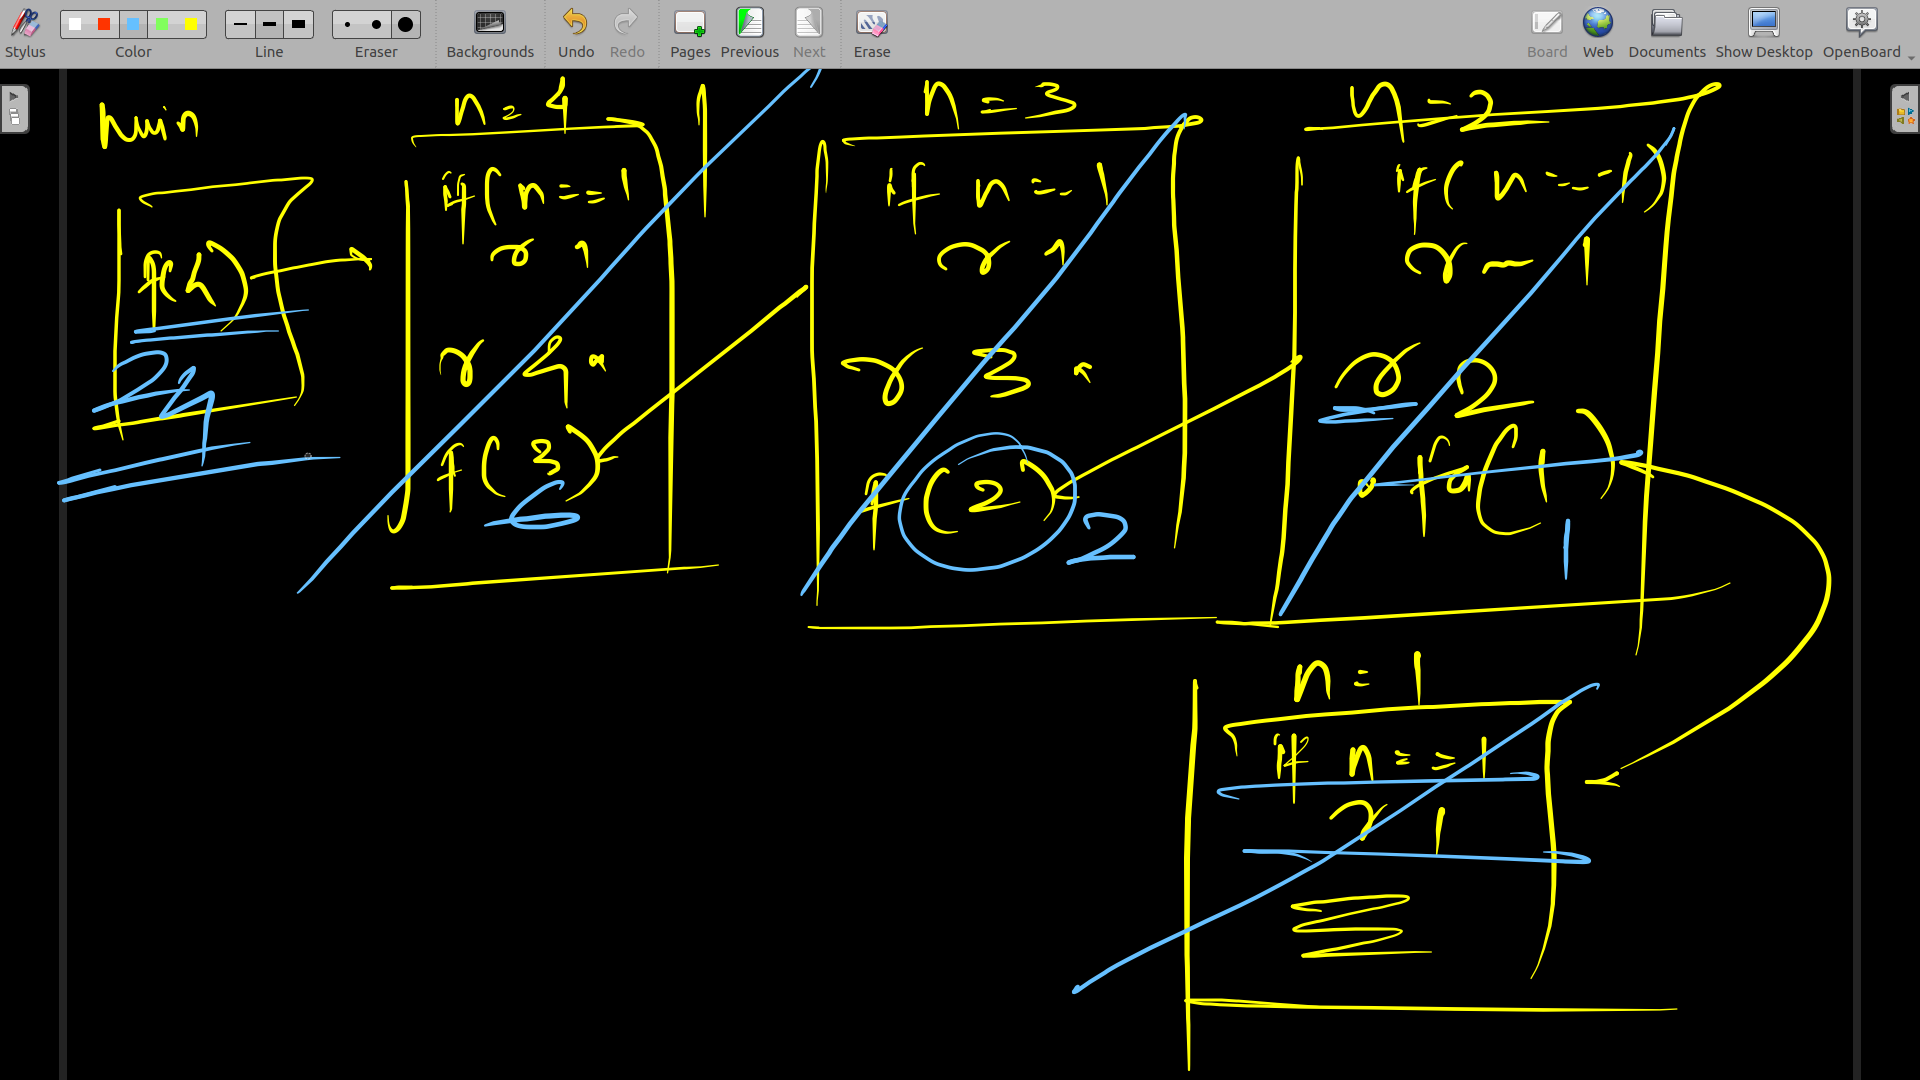 Stylus
Color
Line
Eraser
Backgrounds
Undo
Redo
Pages
Previous
Next
Erase
Board
Web
Documents
Show Desktop
OpenBoard
f(4)
24
n = 4
if( n == 1
r 1
r 4 *
f( 3 )
6
n = 3
if n == 1
r 1
r 3 *
f ( 2 )
2
n = 2
if( n == 1)
r 1
r 2
* fa( 1 )
1
n = 1
if n == 1
r 1